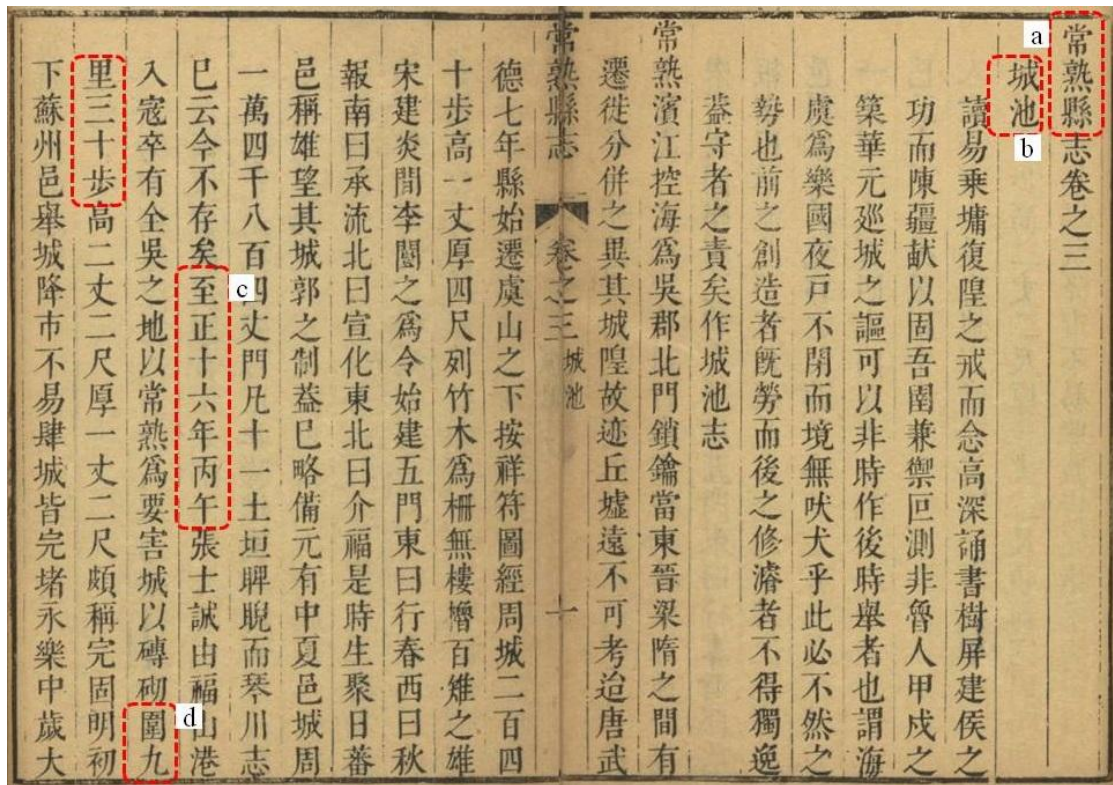 常熟縣志卷之三
城池
讀易乗墉復隍之戒而念高深誦書樹屏建侯之
功而陳疆猷以固吾圉兼禦叵測非魯人甲戍之
築華元廵城之謳可以非時作後時舉者也謂海
虞爲樂國夜戸不閉而境無吠犬乎此必不然之
勢也前之創造者旣勞而後之修濬者不得獨逸
葢守者之責矣作城池志
常熟濱江控海爲吳郡北門鎖鑰當東晉梁隋之間有
遷徙分併之異其城隍故迹丘墟遠不可考迨唐武
常熟縣志 卷之三 城池 一
德七年縣始遷虞山之下按祥符圖經周城二百四
十步高一丈厚四尺列竹木爲柵無樓櫓百雉之雄
宋建炎間李闓之爲令始建五門東曰行春西曰秋
報南曰承流北曰宣化東北曰介福是時生聚日蕃
邑稱雄望其城郭之制葢巳略備元有中夏邑城周
一萬四千八百四丈門凡十一土垣睥睨而琴川志
巳云今不存矣至正十六年丙午張士誠由福山港
入寇卒有全吳之地以常熟爲要害城以磚砌圍九
里三十步高二丈二尺厚一丈二尺頗稱完固明初
下蘇州邑舉城降市不易肆城皆完堵永樂中歲大
a
b
c
d